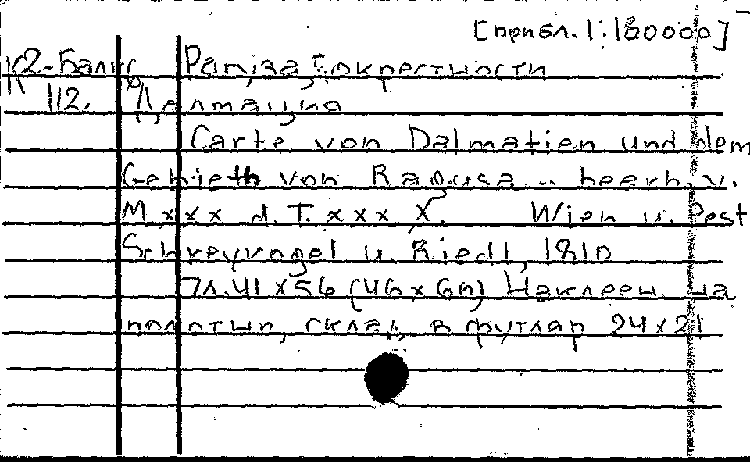 [прибл. 1:180000]
К2-Балк Рагуза, окрестности
1/2. Далмация
Carte von Dalmatien und dem
Gebieth von Ragusa .. bearb. v.
M xxx d. T. xxx X. Wien u. Pest
Schreyvogel u. Riedl, 1810
7л. 41x56 (46x60) Наклеен на
полотно, склад. в футляр 24x21